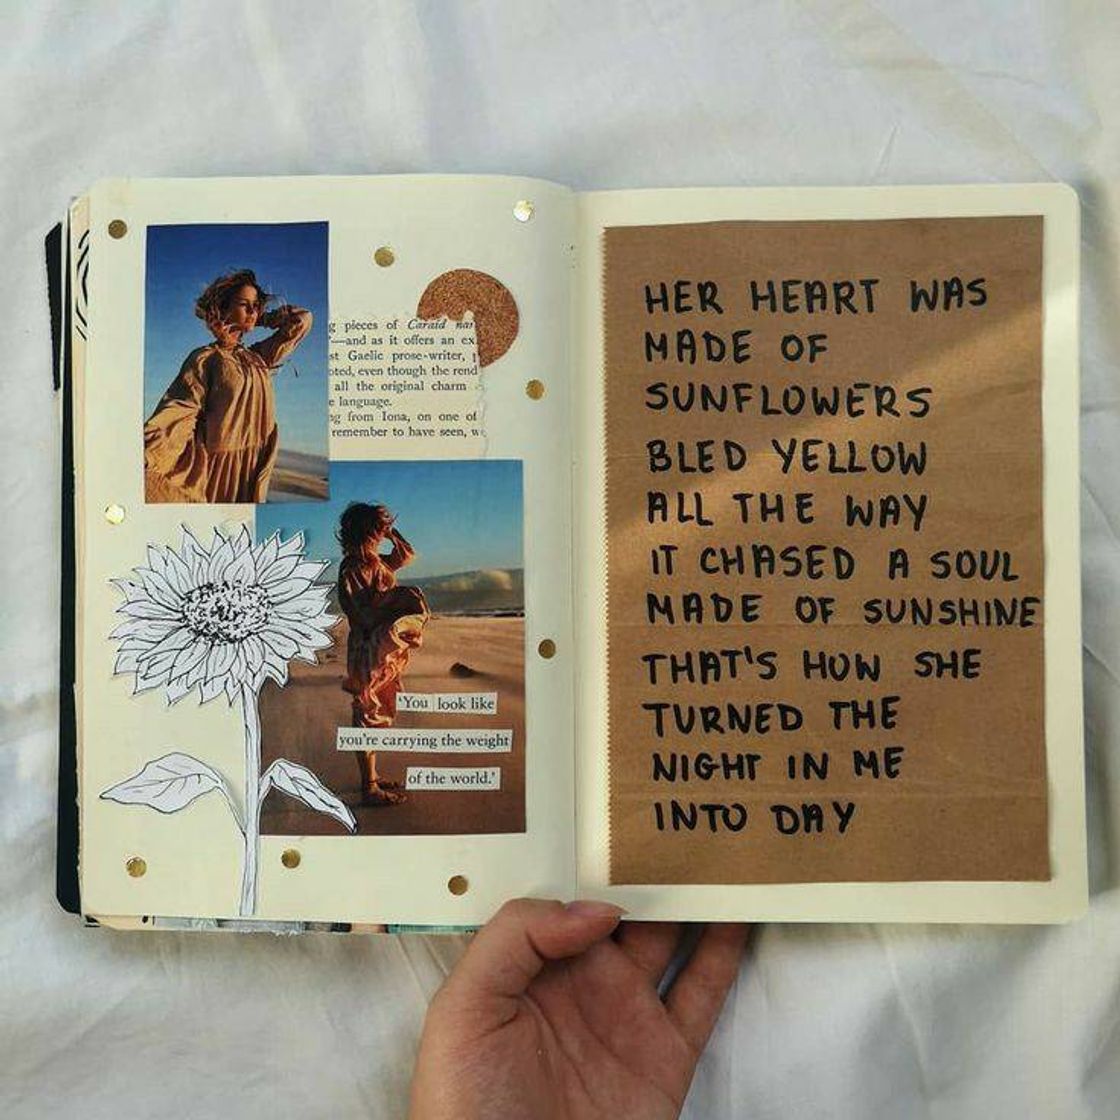 g pieces of Caraid nan
—and as it offers an ex
st Gaelic prose-writer,
oted, even though the rend
all the original charm
e language.
ng from Iona, on one of
remember to have seen, w
'You look like
you're carrying the weight
of the world.'
HER HEART WAS
MADE OF
SUNFLOWERS
BLED YELLOW
ALL THE WAY
IT CHASED A SOUL
MADE OF SUNSHINE
THAT'S HOW SHE
TURNED THE
NIGHT IN ME
INTO DAY